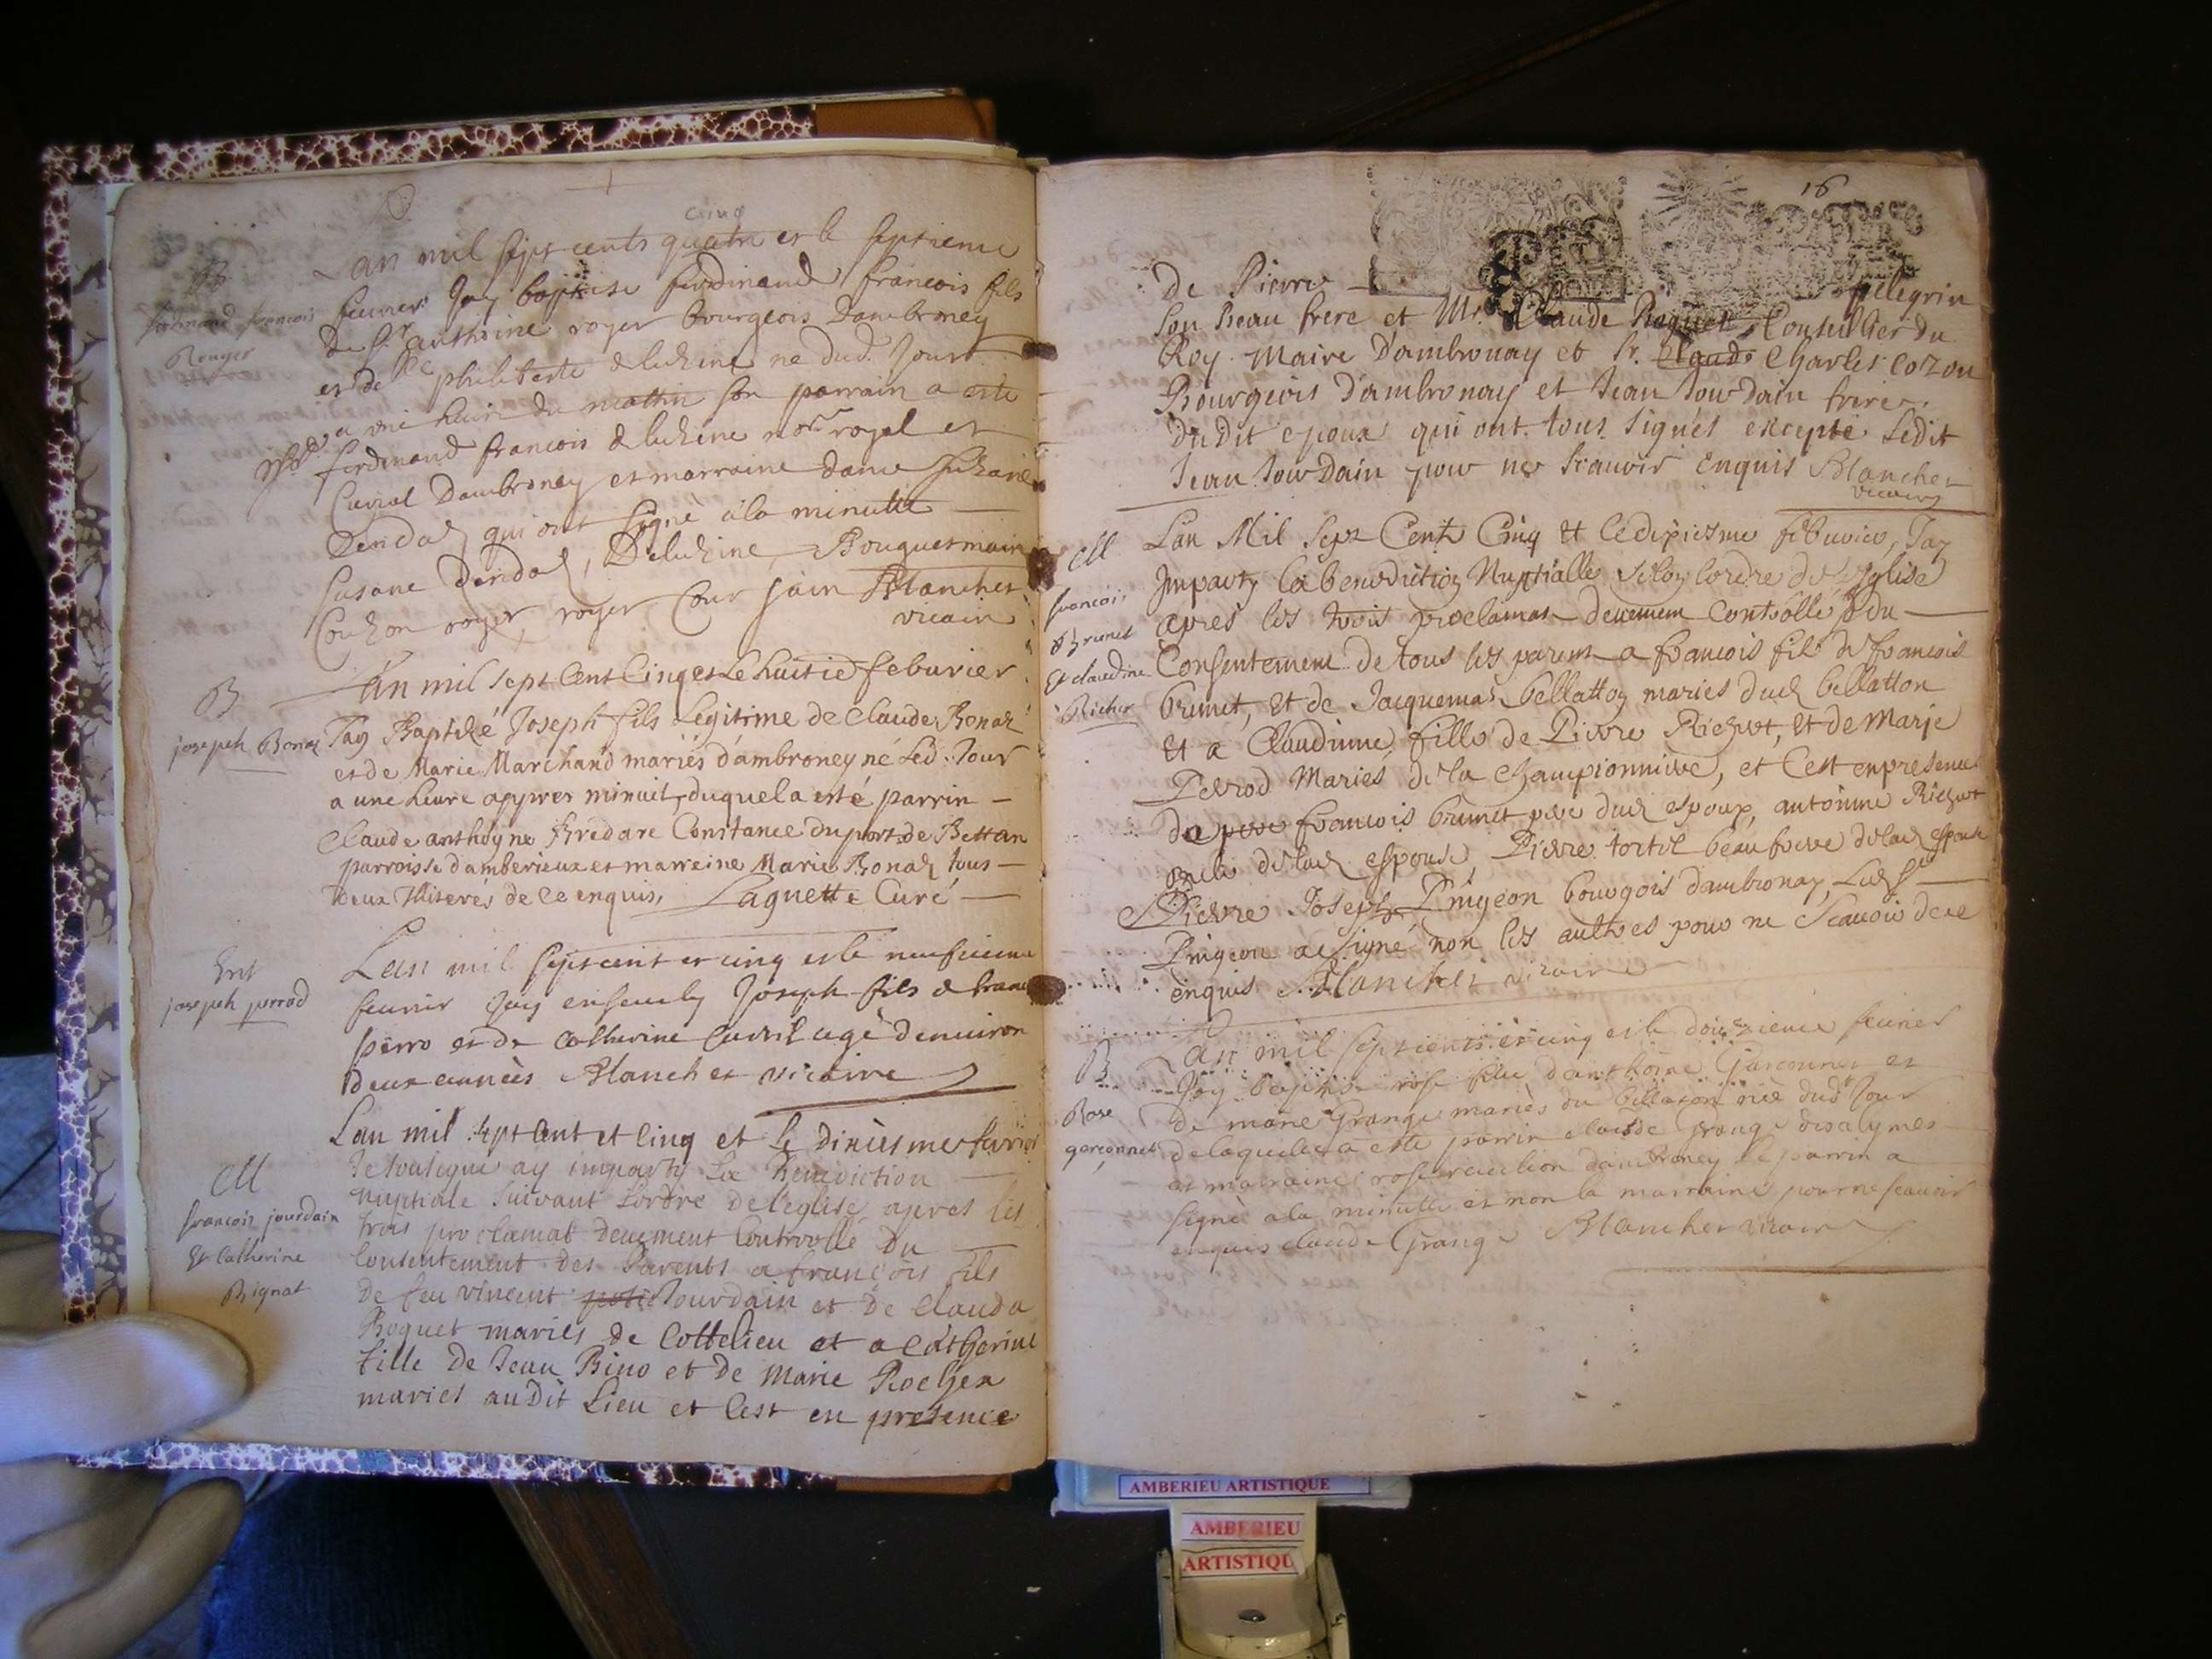 cinq
Lan mil sept cents quatre et le septieme
B
ferdinand francois
Rouger
feuvrier Jay baptise ferdinand francois fils
de sr anthoine royer bourgeois dambroney
et de philiberte deluzine ne dud. Jour
a une heure du mattin son parrain a esté
ferdinand francois deluzine nore royal et
Curial Dambroney et marraine dame Suzane
Dendad qui ont signé a la minutte
Susane Dendad, Deluzine, Bouquet maire
Couzon royer royer Cour Jain Blanchet
vicaire
B
joseph Bonaz
Lan mil sept Cent Cinq et Le huitie feburier
Jay Baptizé Joseph fils Legitime de Claude Bonaz
et de Marie Marchand mariés d'ambroney né Led. Jour
a une heure apprer minuit, duquel a esté parrin
Claude anthoyne Constance du port de Bettan
parroisse damberieux et marreine Marie Bonaz tous
deux Illiterés de ce enquis, Laguette Curé
Ent
joseph perrod
Lan mil sept cent et cinq et le neufvieme
feuvrier Jay ensevely Joseph fils de franc
perro et de Catherine Cavril agé denuiron
deux années Blanchet vicaire
M
francois jourdain
Et Catherine
Bignat
Lan mil sept Cent et Cinq et Le Dixiesme fevrier
Je soussigné ay imparty La Benediction
nuptiale suivant Lordre de leglise apres les
trois proclamat deuement Controollé Du
Consentement des Parents a francois fils
de feu vincent Jourdain et de Clauda
Boquet mariés de Cottelieu et a Catherine
fille de Jean Bino et de Marie Rocher
mariés au Dit Lieu et Cest en presence
16
de Pierre pelegrin
son Beau frere et Mr. Claude Boquet Conseillier du
Roy Maire D'ambronay et Sr. Claude Charles Cozon
Bourgeois D'ambronay et Jean Jourdain frere
dudit epoux qui ont tous signés excepté Ledit
Jean Jourdain pour ne scauoir enquis Blanchet
vicaire
M
francois
Brunet
Et claudine
Richer
Lan Mil Sept Cent Cinq et Le dixiesme feburier, Jay
Imparty la benediction Nuptialle selon lordre de Leglise
apres les trois proclamat deuement Controllé du
Consentement de tous les parens a francois fils de francois
brunet, et de Jacquema bellatton mariés dud bellatton
et a Claudinne fille de Pierre Richert, et de Marie
Perrod Mariés de la Championniere, et Cest en presence
du pere francois brunet pere dud espoux, antoinne Richert
de lad espouse, Pierre tortel beau frere de lad espouse
Pierre Joseph Pingeon bourgois dambronay, Led Sr
Pingeon a signé non les aultres pour ne Scauoir de ce
enquis Blanchet vicaire
B
Rose
garconnet
Lan mil sept cents et cinq et le douzieme feurier
Jay baptisé rose fille danthoine Garconnet et
de marie Grange mariés du bellaton née dud Jour
de laquelle a esté parrin claude Grange des alymes
et marraine rose dambroney le parrin a
signé a la minutte et non la marraine pour ne scauoir
enquis claude Grange Blanchet vicaire
AMBERIEU ARTISTIQUE
AMBERIEU
ARTISTIQU